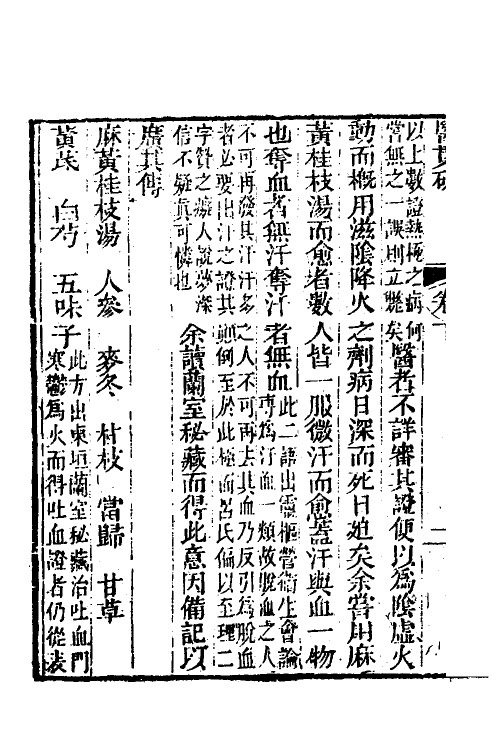 醫貫砭　卷下
以上數證熱極之病何
嘗無之一誤則立斃矣醫者不詳審其證便以為陰虛火
動而概用滋陰降火之劑病日深而死日廹矣余嘗用麻
黃桂枝湯而愈者數人皆一服微汗而愈蓋汗與血一物
也奪血者無汗奪汗者無血此二語出靈樞營衛生會論
專為汗血一類故脫血之人
不可再發其汗汗多之人不可再去其血乃反引為脫血
者必要出汗之證其顛倒至於此極而呂氏偏以至理二
字贊之癡人說夢深
信不疑真可憐也余讀蘭室秘藏而得此意因備記以
廣其傳
麻黃桂枝湯　人參　麥冬　桂枝　當歸　甘草
黃芪　白芍　五味子此方出東垣蘭室秘藏治吐血門
寒鬱為火而得吐血證者仍從表